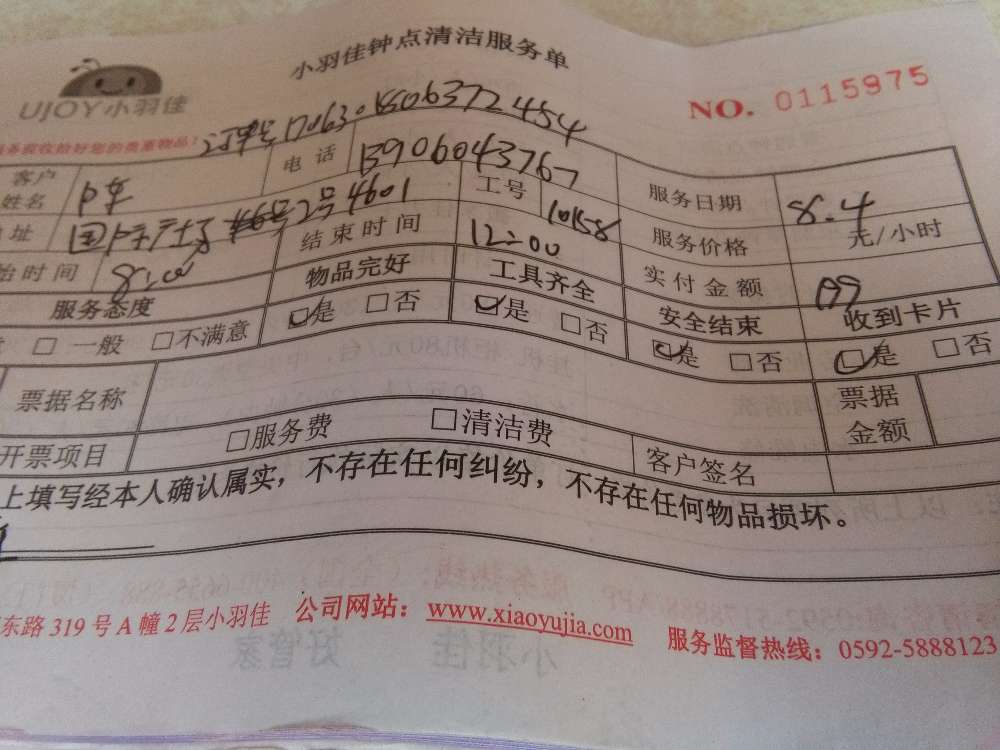 小羽佳钟点清洁服务单
UJOY小羽佳
NO. 0115975
务前请收拾好您的贵重物品!
订单号
客户姓名
电话 13906043767
服务日期 8.4
址 2号4601
工号 10158
服务价格 元/小时
始时间 8:00
结束时间 12:00
实付金额
服务态度 物品完好 工具齐全 安全结束 收到卡片
□ 一般 □不满意 ☑是 □否 ☑是 □否 ☑是 □否 ☑是 □否
票据名称 票据金额
开票项目 □服务费 □清洁费 客户签名
上填写经本人确认属实，不存在任何纠纷，不存在任何物品损坏。
东路 319 号 A 幢 2 层小羽佳 公司网站：www.xiaoyujia.com 服务监督热线：0592-5888123